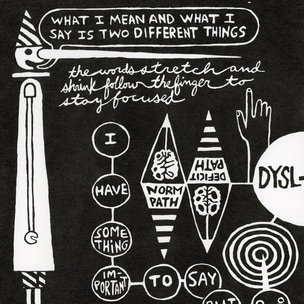 WHAT I MEAN AND WHAT I
SAY IS TWO DIFFERENT THINGS
the words stretch and
shrink follow the finger to
stay focused
I
HAVE
SOME
THING
IM-
PORTANT
TO
SAY
NORM
PATH
DEFICIT
PATH
DYSL-